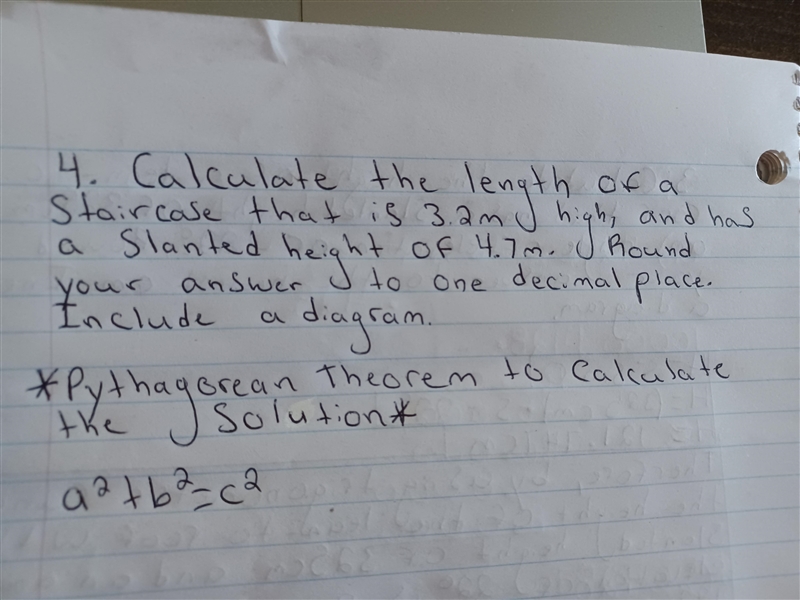 4. Calculate the length of a
Staircase that is 3.2m high, and has
a Slanted height of 4.7m. Round
your answer to one decimal place.
Include a diagram.
*Pythagorean Theorem to Calculate
the Solution*
a²+b²=c²